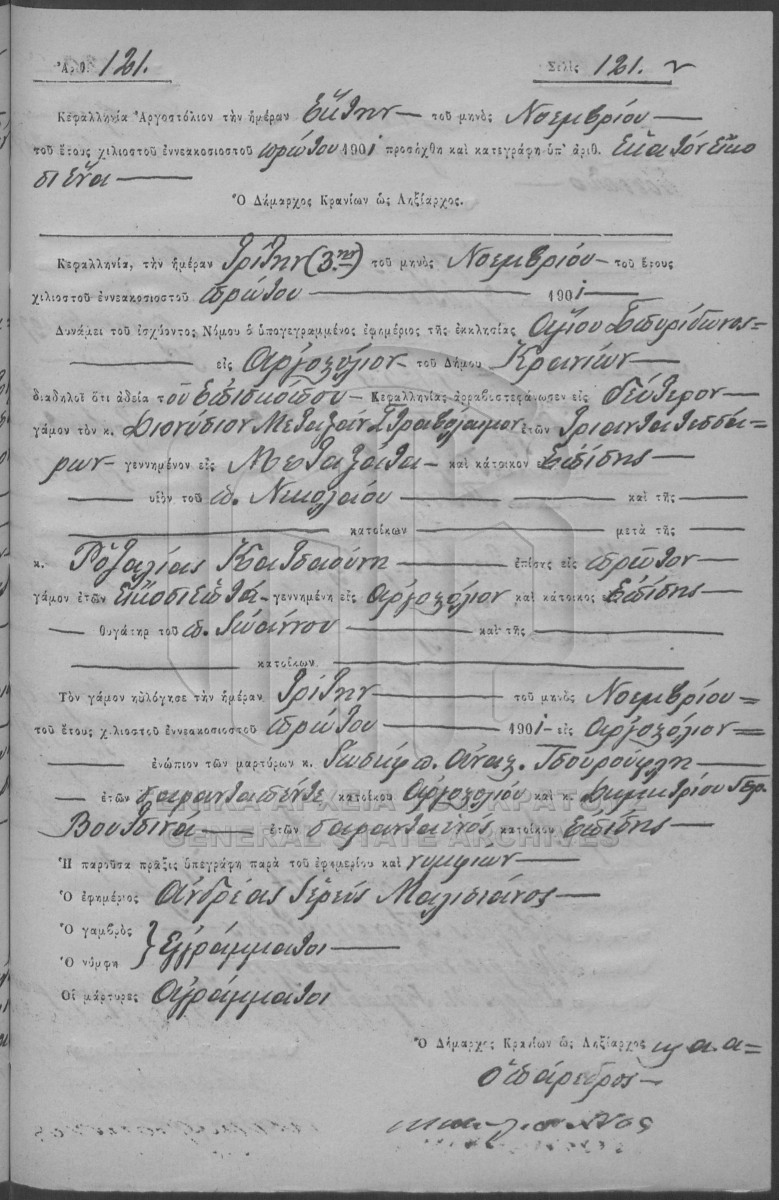 Ἀριθ. 121. Σελὶς 121.
Κεφαλληνία Ἀργοστόλιον τὴν ἡμέραν Ἕκτην τοῦ μηνὸς Νοεμβρίου
τοῦ ἔτους χιλιοστοῦ ἐννεακοσιοστοῦ πρώτου 1901 προσήχθη καὶ κατεγράφη ὑπ' ἀριθ. Ἑκατὸν εἴκο
σι ἕνα
Ὁ Δήμαρχος Κρανίων ὡς Ληξίαρχος.
Κεφαλληνία, τὴν ἡμέραν Τρίτην (3ην) τοῦ μηνὸς Νοεμβρίου τοῦ ἔτους
χιλιοστοῦ ἐννεακοσιοστοῦ πρώτου 1901
Δυνάμει τοῦ ἰσχύοντος Νόμου ὁ ὑπογεγραμμένος ἐφημέριος τῆς ἐκκλησίας Ἁγίου Σπυρίδωνος
εἰς Ἀργοστόλιον τοῦ Δήμου Κρανίων
διαδηλοῖ ὅτι ἀδείᾳ τοῦ Ἐπισκόπου Κεφαλληνίας ἀρραβωστεφάνωσεν εἰς δεύτερον
γάμον τὸν κ. Διονύσιον Μεταξᾶν Στραβόλαιμον ἐτῶν Τριαντατεσσά
ρων γεννημένον εἰς Μεταξάτα καὶ κάτοικον Ἐπίσης
υἱὸν τοῦ π. Νικολάου καὶ τῆς
κατοίκων μετὰ τῆς
κ. Ροζαλίας Κατσαούνη ἐπίσης εἰς πρῶτον
γάμον ἐτῶν Εἴκοσι ἑπτά γεννημένη εἰς Ἀργοστόλιον καὶ κάτοικος Ἐπίσης
θυγάτηρ τοῦ π. Ἰωάννου καὶ τῆς
κατοίκων
Τὸν γάμον ηὐλόγησε τὴν ἡμέραν Τρίτην τοῦ μηνὸς Νοεμβρίου
τοῦ ἔτους χιλιοστοῦ ἐννεακοσιοστοῦ πρώτου 1901 εἰς Ἀργοστόλιον
ἐνώπιον τῶν μαρτύρων κ. Ἰωσὴφ π. Τσουρούφλη
ἐτῶν σαρανταπέντε κατοίκου Ἀργοστολίου καὶ κ. Δημητρίου Γερ.
Βουτσινᾶ ἐτῶν σαρανταενός κατοίκου Ἐπίσης
Ἡ παροῦσα πρᾶξις ὑπεγράφη παρὰ τοῦ ἐφημερίου καὶ νυμφίων
Ὁ ἐφημέριος Ἀνδρέας Ἱερεύς Μαλισιάνος
Ὁ γαμβρὸς
Ὁ νύμφη } Ἐγγράμματοι
Οἱ μάρτυρες Ἀγράμματοι
Ὁ Δήμαρχος Κρανίων ὡς Ληξίαρχος κ. α. α
Ὁ πάρεδρος
ΓΕΝΙΚΑ ΑΡΧΕΙΑ ΤΟΥ ΚΡΑΤΟΥΣ
GENERAL STATE ARCHIVES